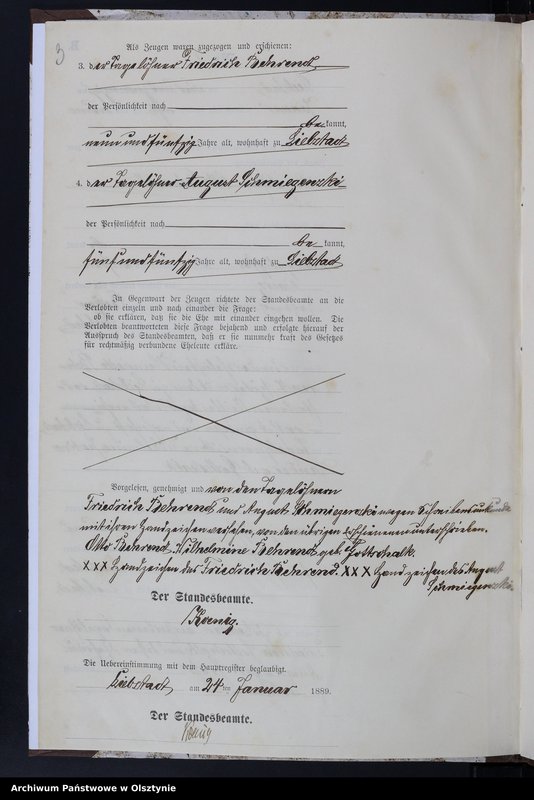 3
Als Zeugen waren zugezogen und erschienen:
3. der Tagelöhner Friedrich Behrend
der Persönlichkeit nach
be kannt,
neunundfünfzig Jahre alt, wohnhaft zu Liebstadt
4. der Tagelöhner August Schmiegenzki
der Persönlichkeit nach
be kannt,
fünfundfünfzig Jahre alt, wohnhaft zu Liebstadt
In Gegenwart der Zeugen richtete der Standesbeamte an die
Verlobten einzeln und nach einander die Frage:
ob sie erklären, daß sie die Ehe mit einander eingehen wollen. Die
Verlobten beantworteten diese Frage bejahend und erfolgte hierauf der
Ausspruch des Standesbeamten, daß er sie nunmehr kraft des Gesetzes
für rechtmäßig verbundene Eheleute erkläre.
Vorgelesen, genehmigt und von den Tagelöhnern
Friedrich Behrend und August Schmiegenzki wegen Schreibensunkunde
mit ihren Handzeichen versehen, von den übrigen Erschienenen unterschrieben.
Otto Behrend. Wilhelmine Behrend geb. Gottschalk.
XXX Handzeichen des Friedrich Behrend. XXX Handzeichen des August
Schmiegenzki.
Der Standesbeamte.
Koenig.
Die Uebereinstimmung mit dem Hauptregister beglaubigt.
Liebstadt am 24 ten Januar 1889.
Der Standesbeamte.
Koenig
Archiwum Państwowe w Olsztynie